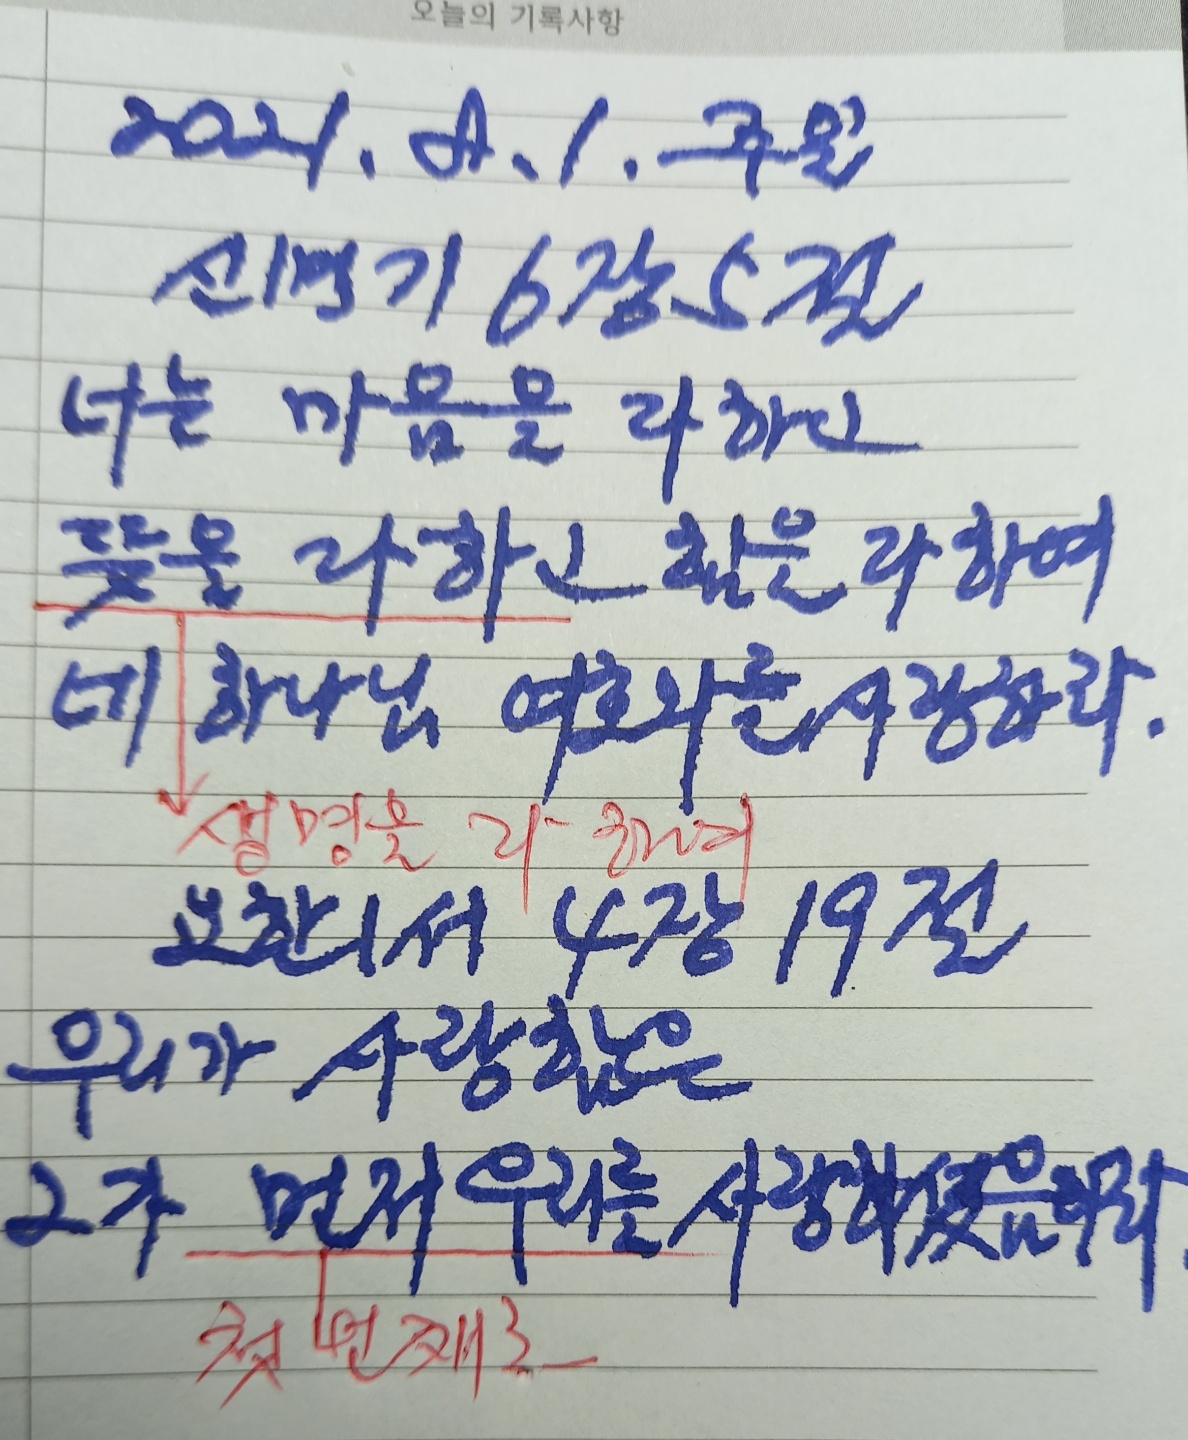 오늘의 기록사항
2021. 8. 1. 주일
신명기 6장 5절
너는 마음을 다하고
뜻을 다하고 힘을 다하여
네 하나님 여호와를 사랑하라.
생명을 다 하여
요한1서 4장 19절
우리가 사랑함은
그가 먼저 우리를 사랑하셨음이라.
첫 번째로